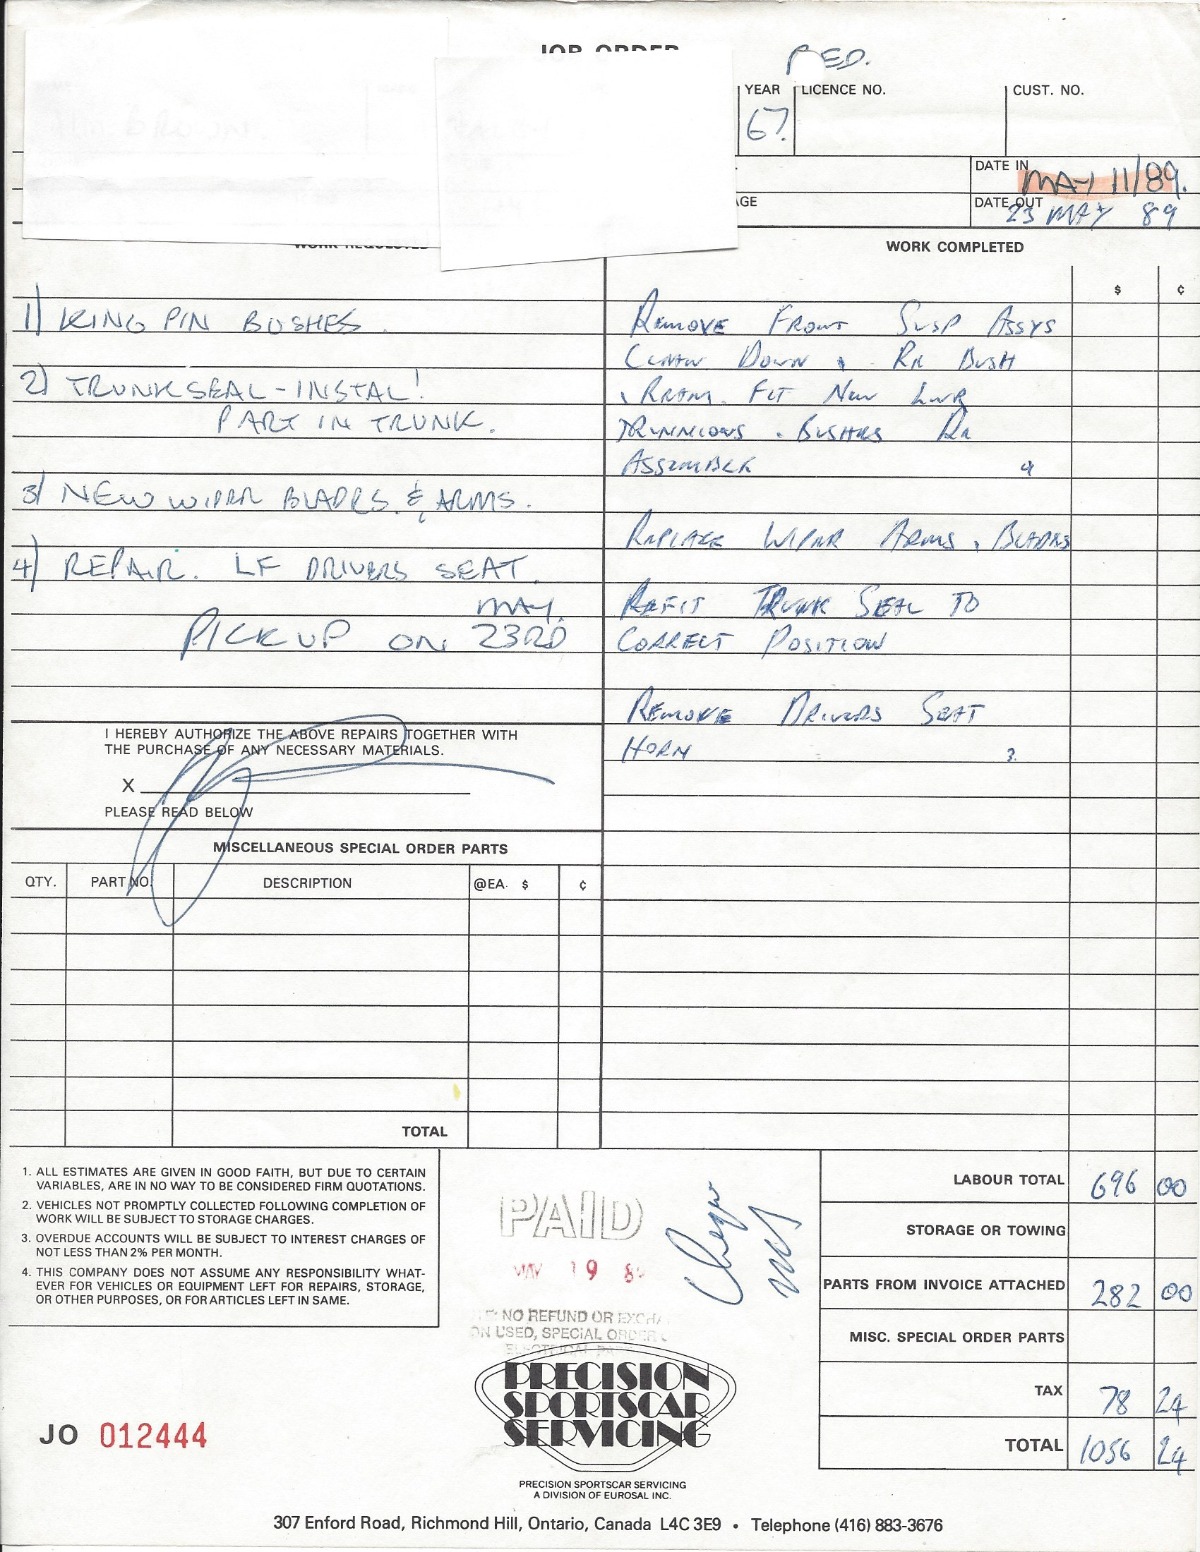 JOB ORDER
RED.
YEAR
LICENCE NO.
CUST. NO.
67.
DATE IN
MAY 11/89.
AGE
DATE OUT
23 MAY 89
WORK REQUESTED
WORK COMPLETED
$ ¢
1) KING PIN BUSHES.
2) TRUNK SEAL - INSTAL!
PART IN TRUNK.
3) NEW WIPER BLADES & ARMS.
4) REPAIR. LF DRIVERS SEAT.
PICK UP ON MAY 23RD
REMOVE FRONT SUSP ASSYS
CLEAN DOWN , RE BUSH
FIT NEW LWR
TRUNNIONS , BUSHES RE
ASSEMBLE 4
REPLACE WIPER ARMS , BLADES
REFIT TRUNK SEAL TO
CORRECT POSITION
REMOVE DRIVERS SEAT
HORN 3.
I HEREBY AUTHORIZE THE ABOVE REPAIRS TOGETHER WITH
THE PURCHASE OF ANY NECESSARY MATERIALS.
X
PLEASE READ BELOW
MISCELLANEOUS SPECIAL ORDER PARTS
QTY. PART NO. DESCRIPTION @EA. $ ¢
TOTAL
1. ALL ESTIMATES ARE GIVEN IN GOOD FAITH, BUT DUE TO CERTAIN
VARIABLES, ARE IN NO WAY TO BE CONSIDERED FIRM QUOTATIONS.
2. VEHICLES NOT PROMPTLY COLLECTED FOLLOWING COMPLETION OF
WORK WILL BE SUBJECT TO STORAGE CHARGES.
3. OVERDUE ACCOUNTS WILL BE SUBJECT TO INTEREST CHARGES OF
NOT LESS THAN 2% PER MONTH.
4. THIS COMPANY DOES NOT ASSUME ANY RESPONSIBILITY WHAT-
EVER FOR VEHICLES OR EQUIPMENT LEFT FOR REPAIRS, STORAGE,
OR OTHER PURPOSES, OR FOR ARTICLES LEFT IN SAME.
PAID
MAY 19 89
NO REFUND OR EXCHA
ON USED, SPECIAL ORDER
LABOUR TOTAL 696 00
STORAGE OR TOWING
PARTS FROM INVOICE ATTACHED 282 00
MISC. SPECIAL ORDER PARTS
TAX 78 24
TOTAL 1056 24
JO 012444
PRECISION
SPORTSCAR
SERVICING
PRECISION SPORTSCAR SERVICING
A DIVISION OF EUROSAL INC.
307 Enford Road, Richmond Hill, Ontario, Canada L4C 3E9 • Telephone (416) 883-3676